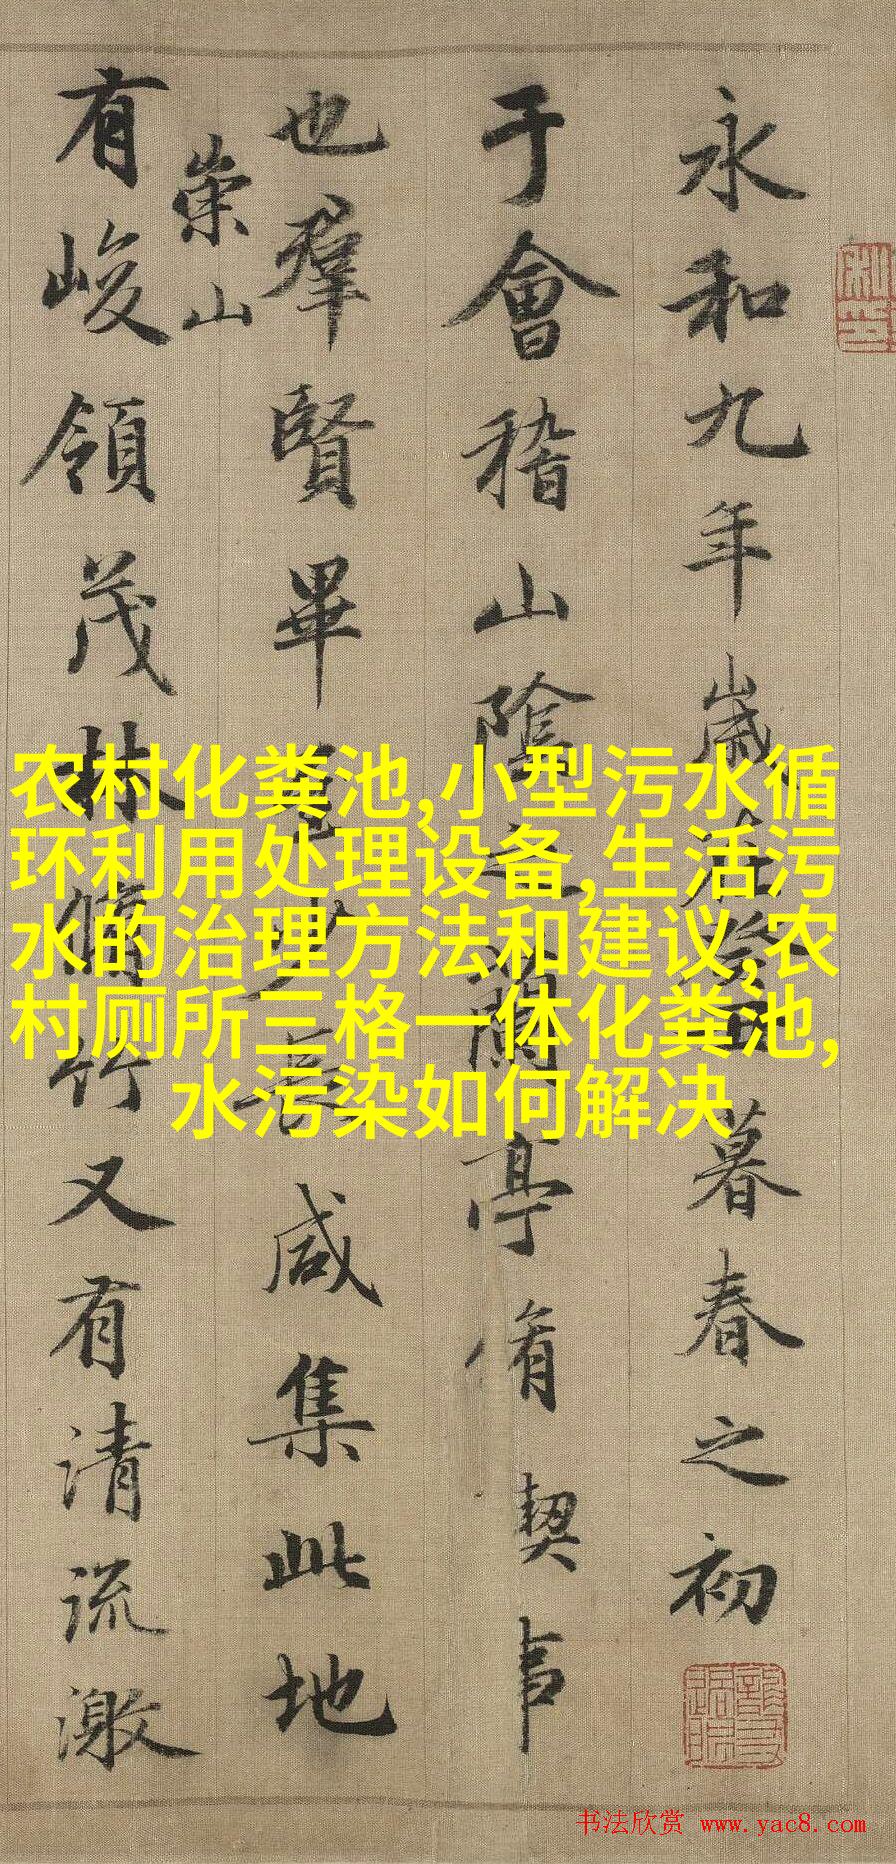 永和九年歲在癸丑暮春之初
于會稽山陰之蘭亭脩契事
也羣賢畢至少長咸集此地
崇山
有峻領茂林脩竹又有清流激
农村化粪池,小型污水循
环利用处理设备,生活污
水的治理方法和建议,农
村厕所三格一体化粪池,
水污染如何解决
书法欣赏 www.yac8.com